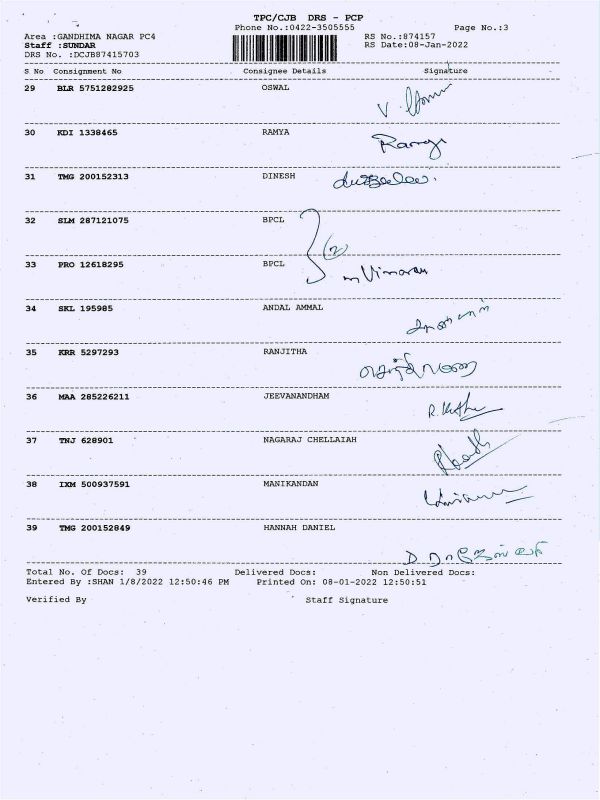 TPC/CJB DRS - PCP
Phone No.:0422-3505555 Page No.:3
Area :GANDHIMA NAGAR PC4 RS No.:874157
Staff :SUNDAR RS Date:08-Jan-2022
DRS No. :DCJB87415703
S No Consignment No Consignee Details Signature
29 BLR 5751282925 OSWAL
30 KDI 1338465 RAMYA
Ramya
31 TMG 200152313 DINESH
32 SLM 287121075 BPCL
(2)
33 PRO 12618295 BPCL
34 SKL 195985 ANDAL AMMAL
35 KRR 5297293 RANJITHA
36 MAA 285226211 JEEVANANDHAM
37 TNJ 628901 NAGARAJ CHELLAIAH
38 IXM 500937591 MANIKANDAN
39 TMG 200152849 HANNAH DANIEL
Total No. Of Docs: 39 Delivered Docs: Non Delivered Docs:
Entered By :SHAN 1/8/2022 12:50:46 PM Printed On: 08-01-2022 12:50:51
Verified By Staff Signature